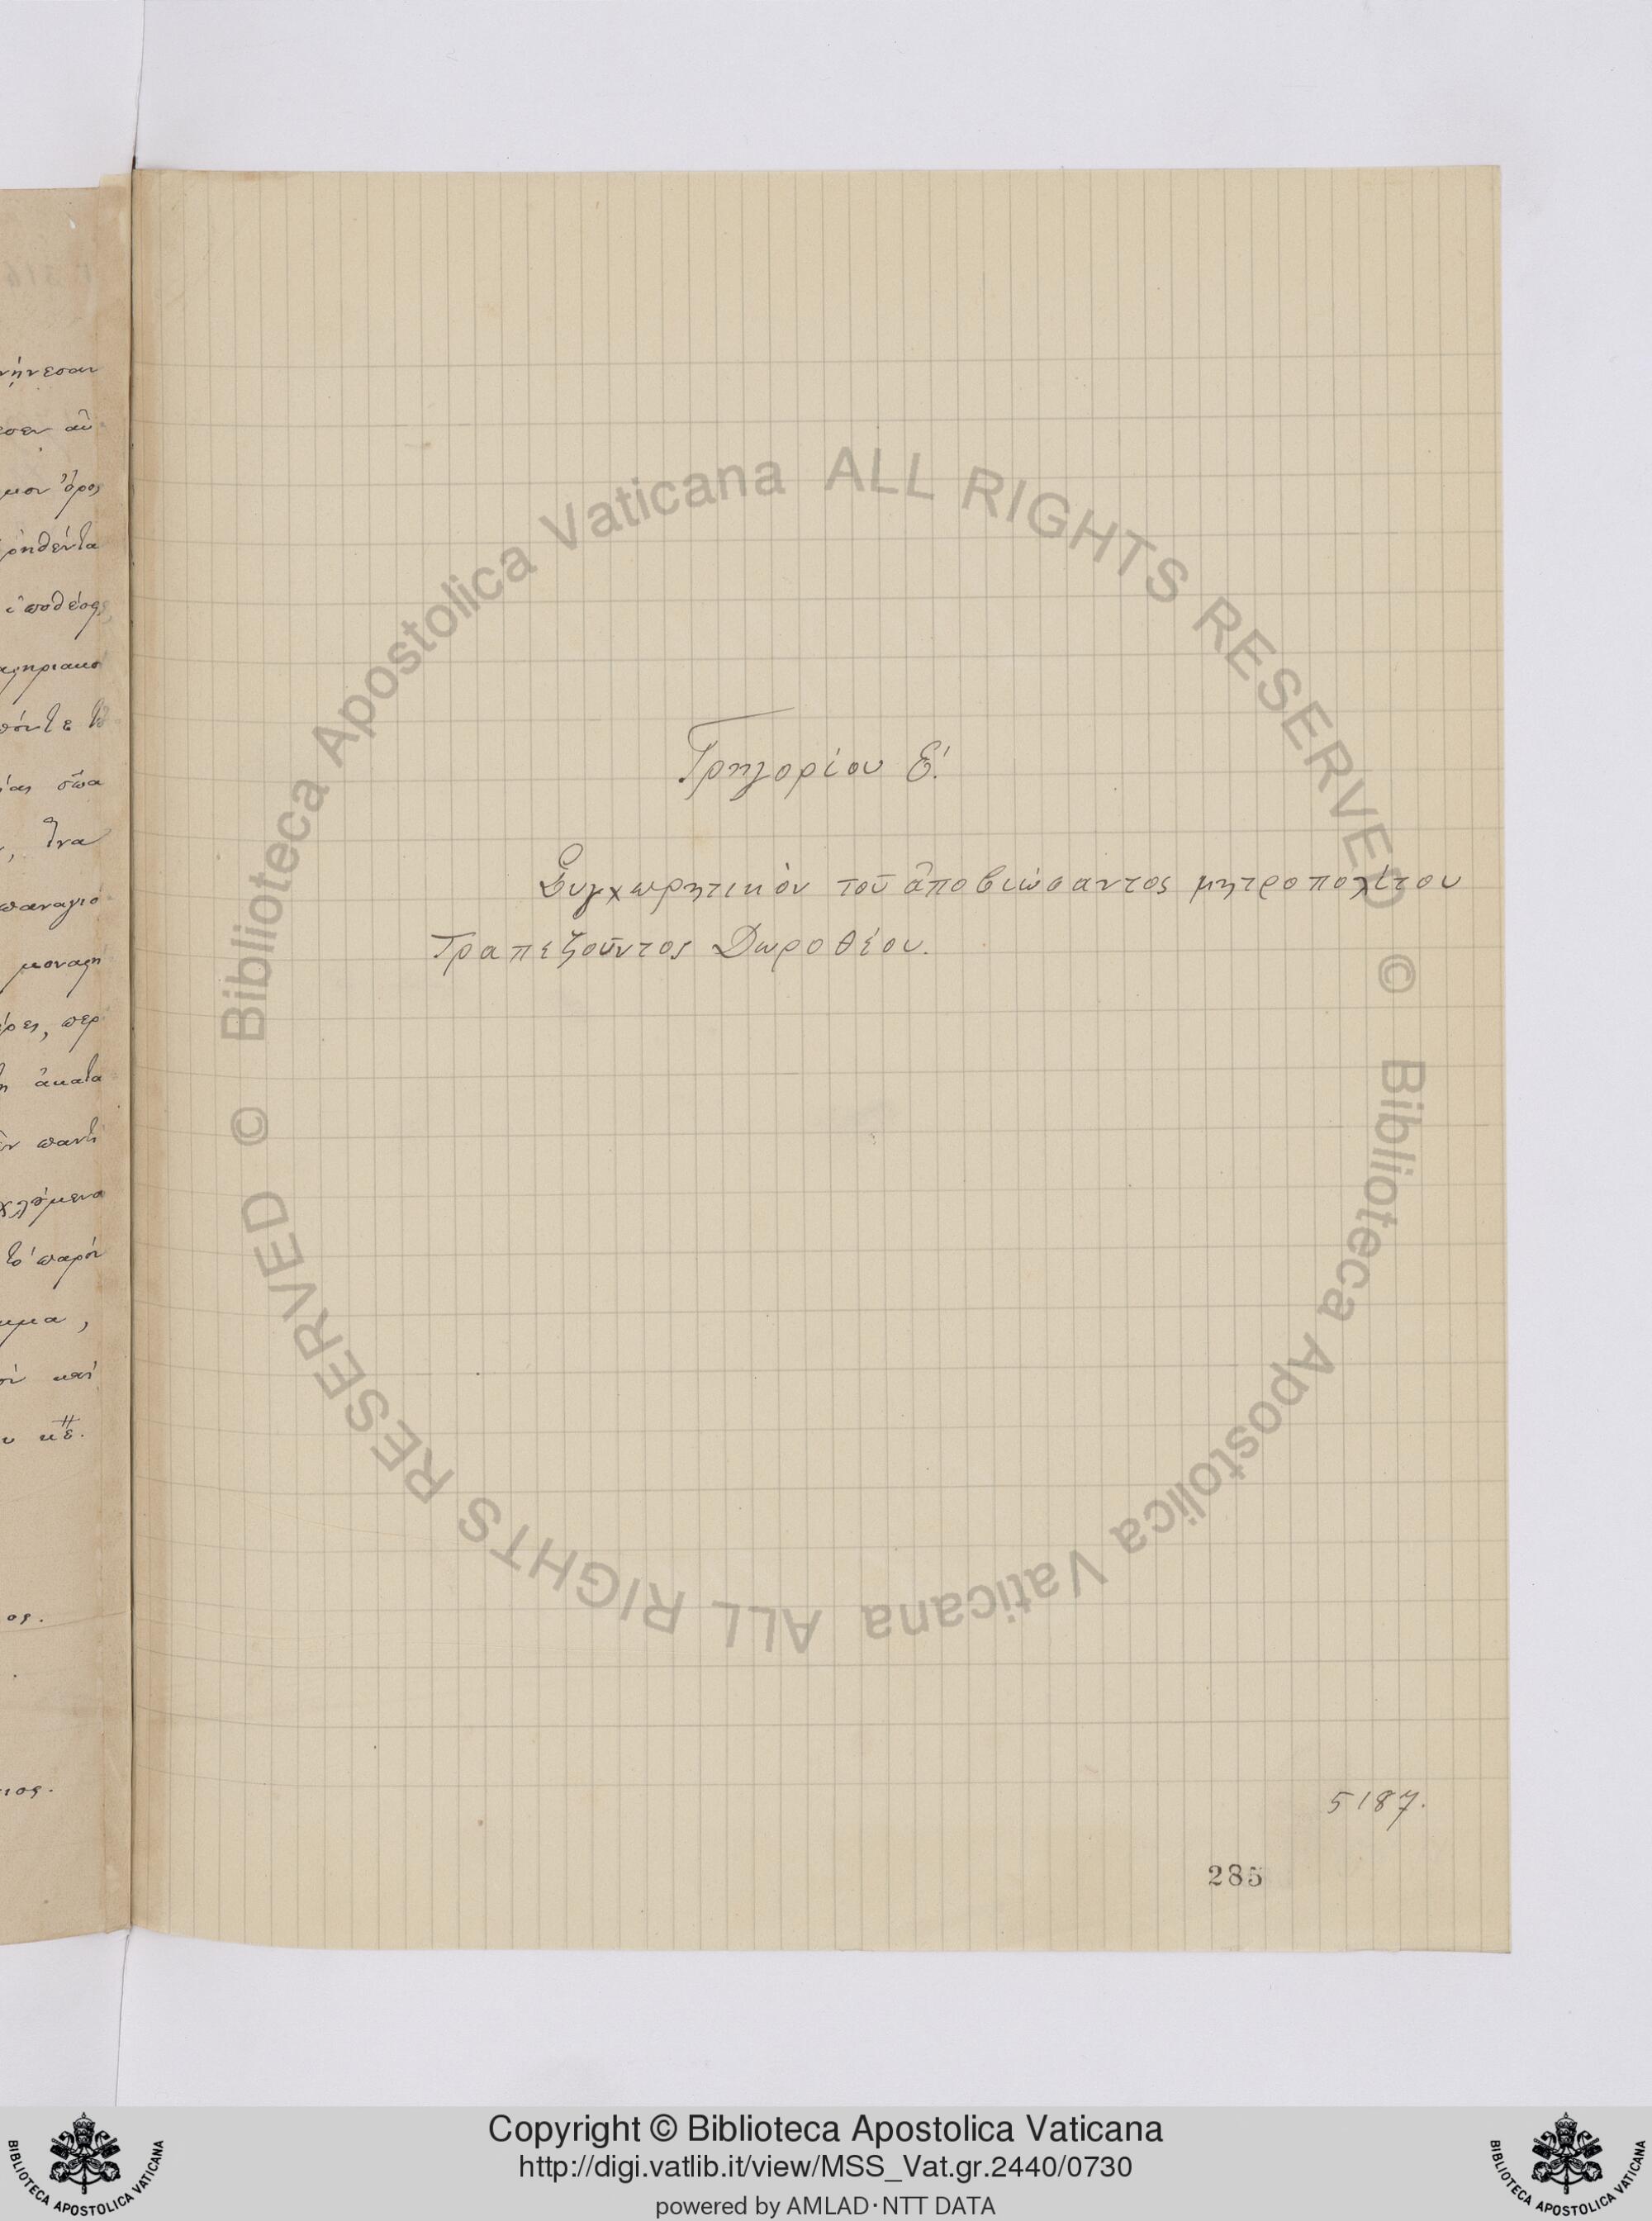 Γρηγορίου Ε΄.
Συγχωρητικὸν τοῦ ἀποβιώσαντος μητροπολίτου
Τραπεζοῦντος Δωροθέου.
5187.
285
νήνεσαν
ὄρος
ῥηθέντα
ὑποθέσεως
ἵνα
μοναχὴ
παντὶ
παρόν
καὶ
κε.
ος.
Biblioteca Apostolica Vaticana ALL RIGHTS RESERVED ©
Biblioteca Apostolica Vaticana ALL RIGHTS RESERVED ©
Copyright © Biblioteca Apostolica Vaticana
http://digi.vatlib.it/view/MSS_Vat.gr.2440/0730
powered by AMLAD·NTT DATA
BIBLIOTECA APOSTOLICA VATICANA
BIBLIOTECA APOSTOLICA VATICANA